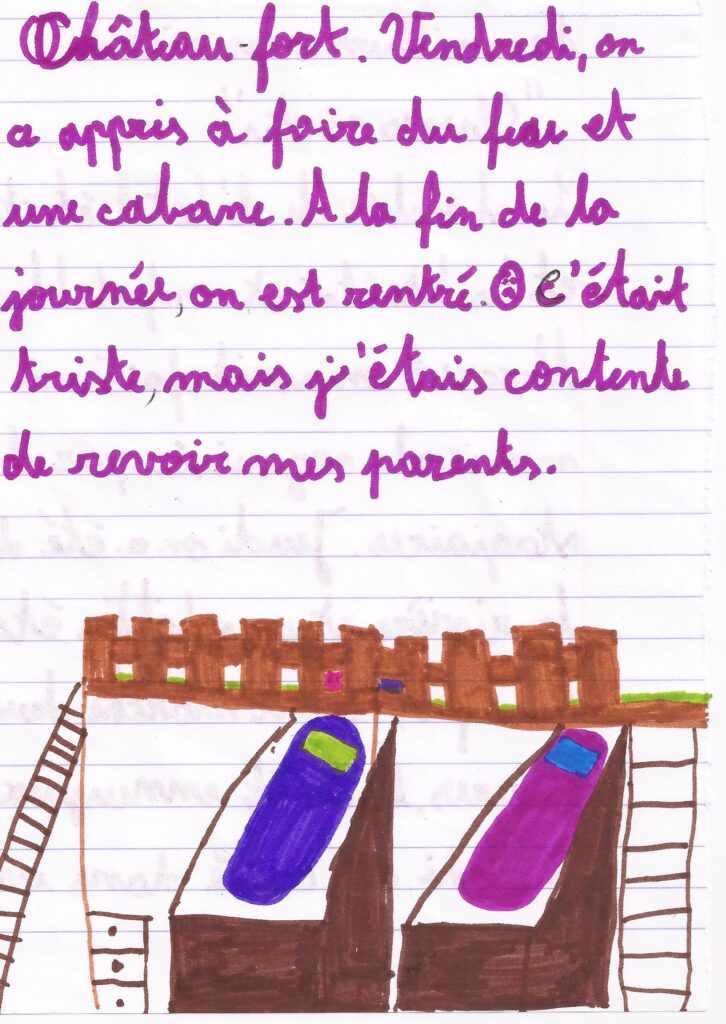 Château-fort. Vendredi, on
a appris à faire du feu et
une cabane. A la fin de la
journée, on est rentré. C'était
triste, mais j'étais contente
de revoir mes parents.